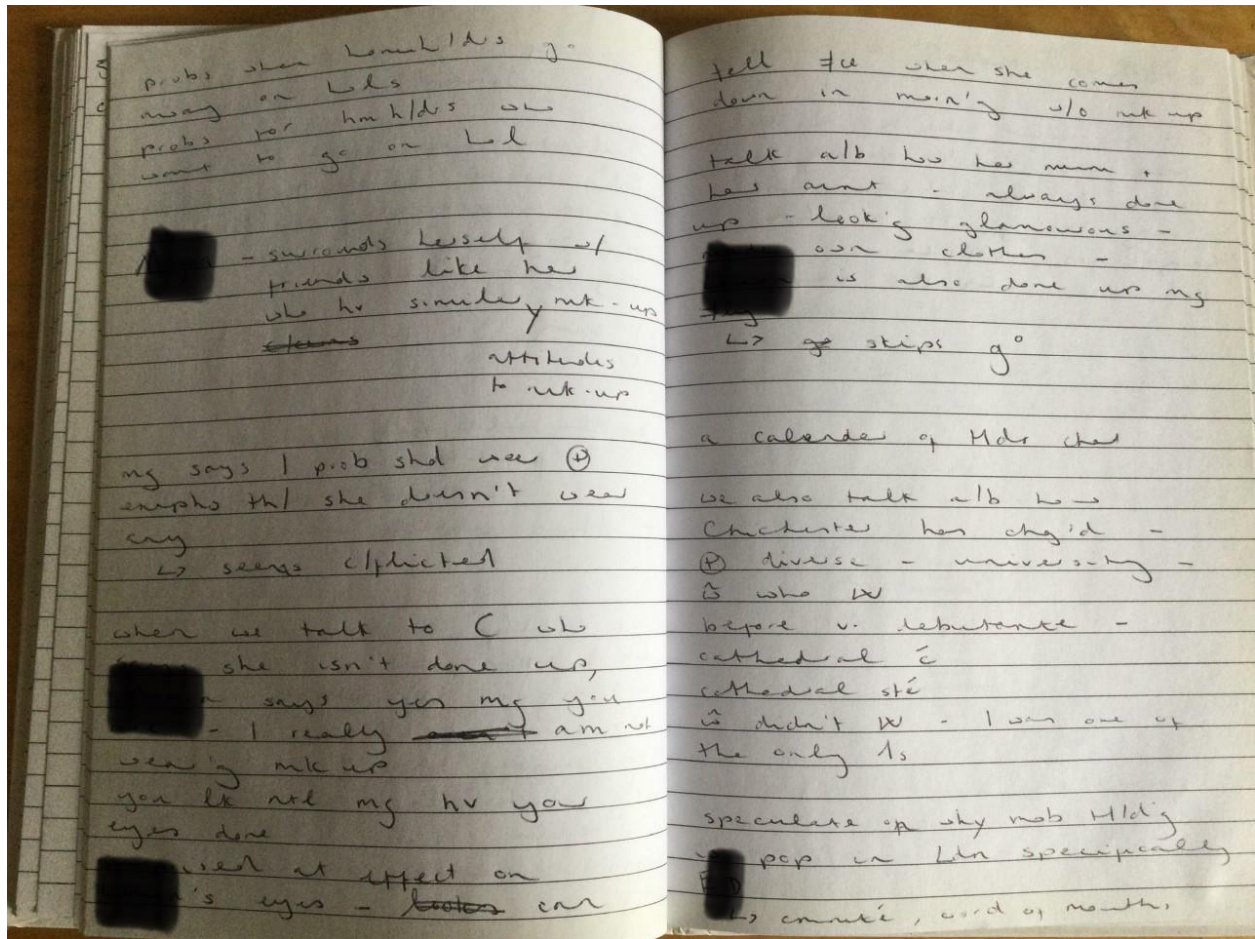 probs when homeh/drs go
away on hols
probs for hmh/drs who
want to go on hol
- surrounds herself w/
friends like her
who hv similar mk-up
attitudes
to mk-up
mg says I prob shd wear ⊕
emphs th/ she doesn't wear
any
↳ seems c/plicted
when we talk to C who
she isn't done up,
says yes mg you
- I really am not
wear'g mk up
you lk ntl mg hv your
eyes done
at effect on
's eyes - can
tell when she comes
down in morn'g w/o mk up
talk a/b how her mum +
her aunt - always done
up - look'g glamorous -
own clothes -
is also done up mg
↳ skips g°
a calendar of Hdr
we also talk a/b how
Chichester has chg'd -
⊕ diverse - university -
who
before v. debutante -
cathedral
cathedral
didn't - I was one of
the only 1s
speculate on why mob H/d'g
pop in Ldn specifically
↳ word of mouth,